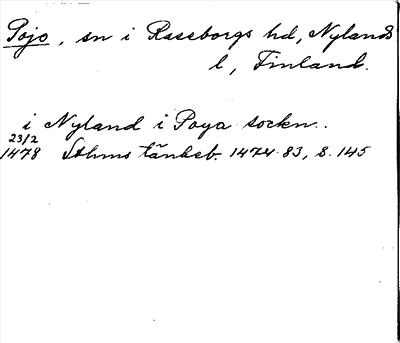 Pojo, sn i Raseborgs hd, Nylands
l, Finland.
i Nyland i Poyo sockn..
23/2
1478 Sthms tänkeb. 1474-83, s. 145